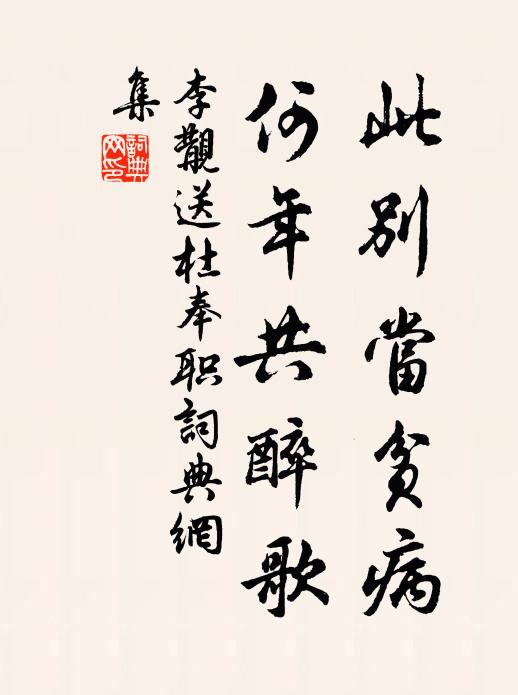 此別當貧病
何年共醉歌
李覯送杜奉职詞典網
集
詞典网印